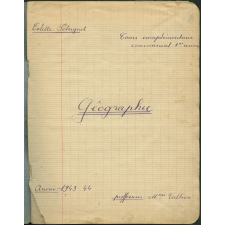 Colette
Cours complémentaire
commercial 1re année
Géographie
Année 1943 44
professeur: Mme